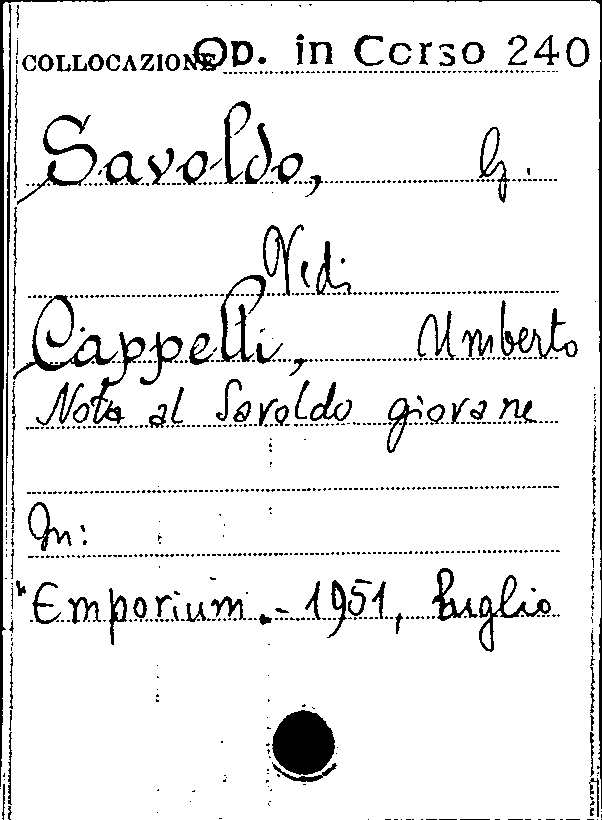 COLLOCAZIONE Op. in Corso 240
Savoldo, G.
Vedi
Cappelli, Umberto
Nota al Savoldo giovane
In:
"Emporium.- 1951, luglio